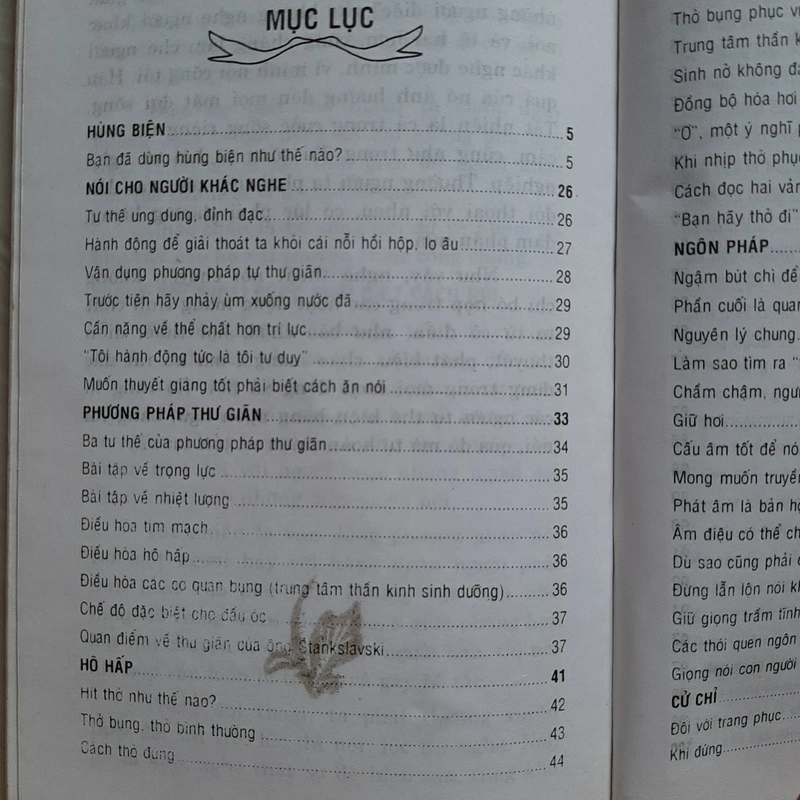 MỤC LỤC
HÙNG BIỆN 5
Bạn đã dùng hùng biện như thế nào? 5
NÓI CHO NGƯỜI KHÁC NGHE 26
Tư thế ung dung, đĩnh đạc 26
Hành động để giải thoát ta khỏi cái nỗi hồi hộp, lo âu 27
Vận dụng phương pháp tự thư giãn 28
Trước tiên hãy nhảy ùm xuống nước đã 29
Cần nặng về thể chất hơn trí lực 29
"Tôi hành động tức là tôi tư duy" 30
Muốn thuyết giảng tốt phải biết cách ăn nói 31
PHƯƠNG PHÁP THƯ GIÃN 33
Ba tư thế của phương pháp thư giãn 34
Bài tập về trọng lực 35
Bài tập về nhiệt lượng 35
Điều hòa tim mạch 36
Điều hòa hô hấp 36
Điều hòa các cơ quan bụng (trung tâm thần kinh sinh dưỡng) 36
Chế độ đặc biệt cho đầu óc 37
Quan điểm về thư giãn của ông Stankslavski 37
HÔ HẤP 41
Hít thở như thế nào? 42
Thở bụng, thở bình thường 43
Cách thở đúng 44
Thở bụng phục
Trung tâm thần
Sinh nở không
Đồng bộ hóa hơi
"Ơ", một ý nghĩ
Khi nhịp thở phục
Cách đọc hai
"Bạn hãy thở đi"
NGÔN PHÁP
Ngậm bút chì để
Phần cuối là
Nguyên lý chung
Làm sao tìm ra
Chầm chậm,
Giữ hơi
Cấu âm tốt để
Mong muốn
Phát âm là bản
Âm điệu có thể
Dù sao cũng phải
Đừng lẫn lộn nói
Giữ giọng trầm
Các thói quen ngôn
Giọng nói con người
CỬ CHỈ
Đối với trang phục
Khi đứng